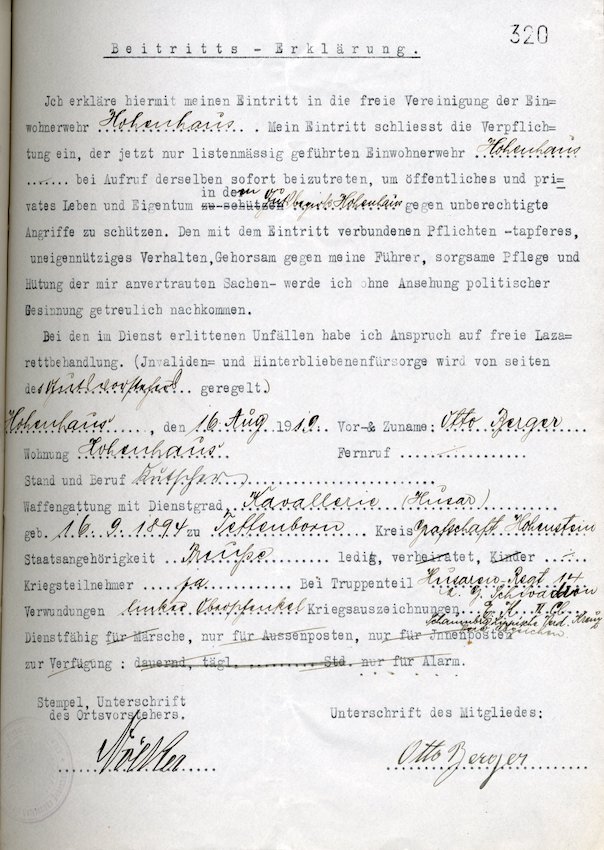 320
Beitritts - Erklärung.
Jch erkläre hiermit meinen Eintritt in die freie Vereinigung der Ein=
wohnerwehr Hohenhaus. . Mein Eintritt schliesst die Verpflich=
tung ein, der jetzt nur listenmässig geführten Einwohnerwehr Hohenhaus
....... bei Aufruf derselben sofort beizutreten, um öffentliches und pri=
in dem
vates Leben und Eigentum zu schützen Gutsbezirk Hohenhaus gegen unberechtigte
Angriffe zu schützen. Den mit dem Eintritt verbundenen Pflichten -tapferes,
uneigennütziges Verhalten,Gehorsam gegen meine Führer, sorgsame Pflege und
Hütung der mir anvertrauten Sachen- werde ich ohne Ansehung politischer
Gesinnung getreulich nachkommen.
Bei den im Dienst erlittenen Unfällen habe ich Anspruch auf freie Laza=
rettbehandlung. (Jnvaliden= und Hinterbliebenenfürsorge wird von seiten
des ..... geregelt.)
Hohenhaus....., den 16. Aug 1919.. Vor-& Zuname: Otto Berger
Wohnung Hohenhaus Fernruf
Stand und Beruf Kutscher
Waffengattung mit Dienstgrad Kavallerie (Husar)
geb. 16. 9. 1894 zu Tettenborn Kreis Grafschaft Hohenstein
Staatsangehörigkeit Preuße ledig, verheiratet, Kinder
Kriegsteilnehmer ja Bei Truppenteil Husaren Regt 14
Schwadron
Verwundungen linker Oberschenkel Kriegsauszeichnungen E. K. II. Cl.
Schaumburg Lippische Verd. Kreuz
Dienstfähig für Märsche, nur für Aussenposten, nur für Jnnenposten
zur Verfügung : dauernd, tägl. .......... Std. nur für Alarm.
Stempel, Unterschrift
des Ortsvorstehers.
Unterschrift des Mitgliedes:
Otto Berger